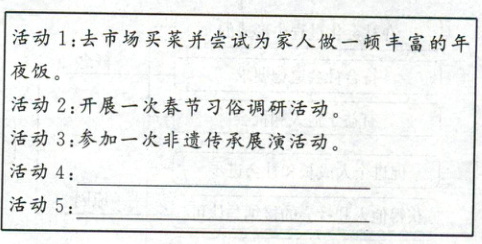 活动1:去市场买菜并尝试为家人做一顿丰富的年
夜饭。
活动2:开展一次春节习俗调研活动。
活动3:参加一次非遗传承展演活动。
活动4:
活动5: